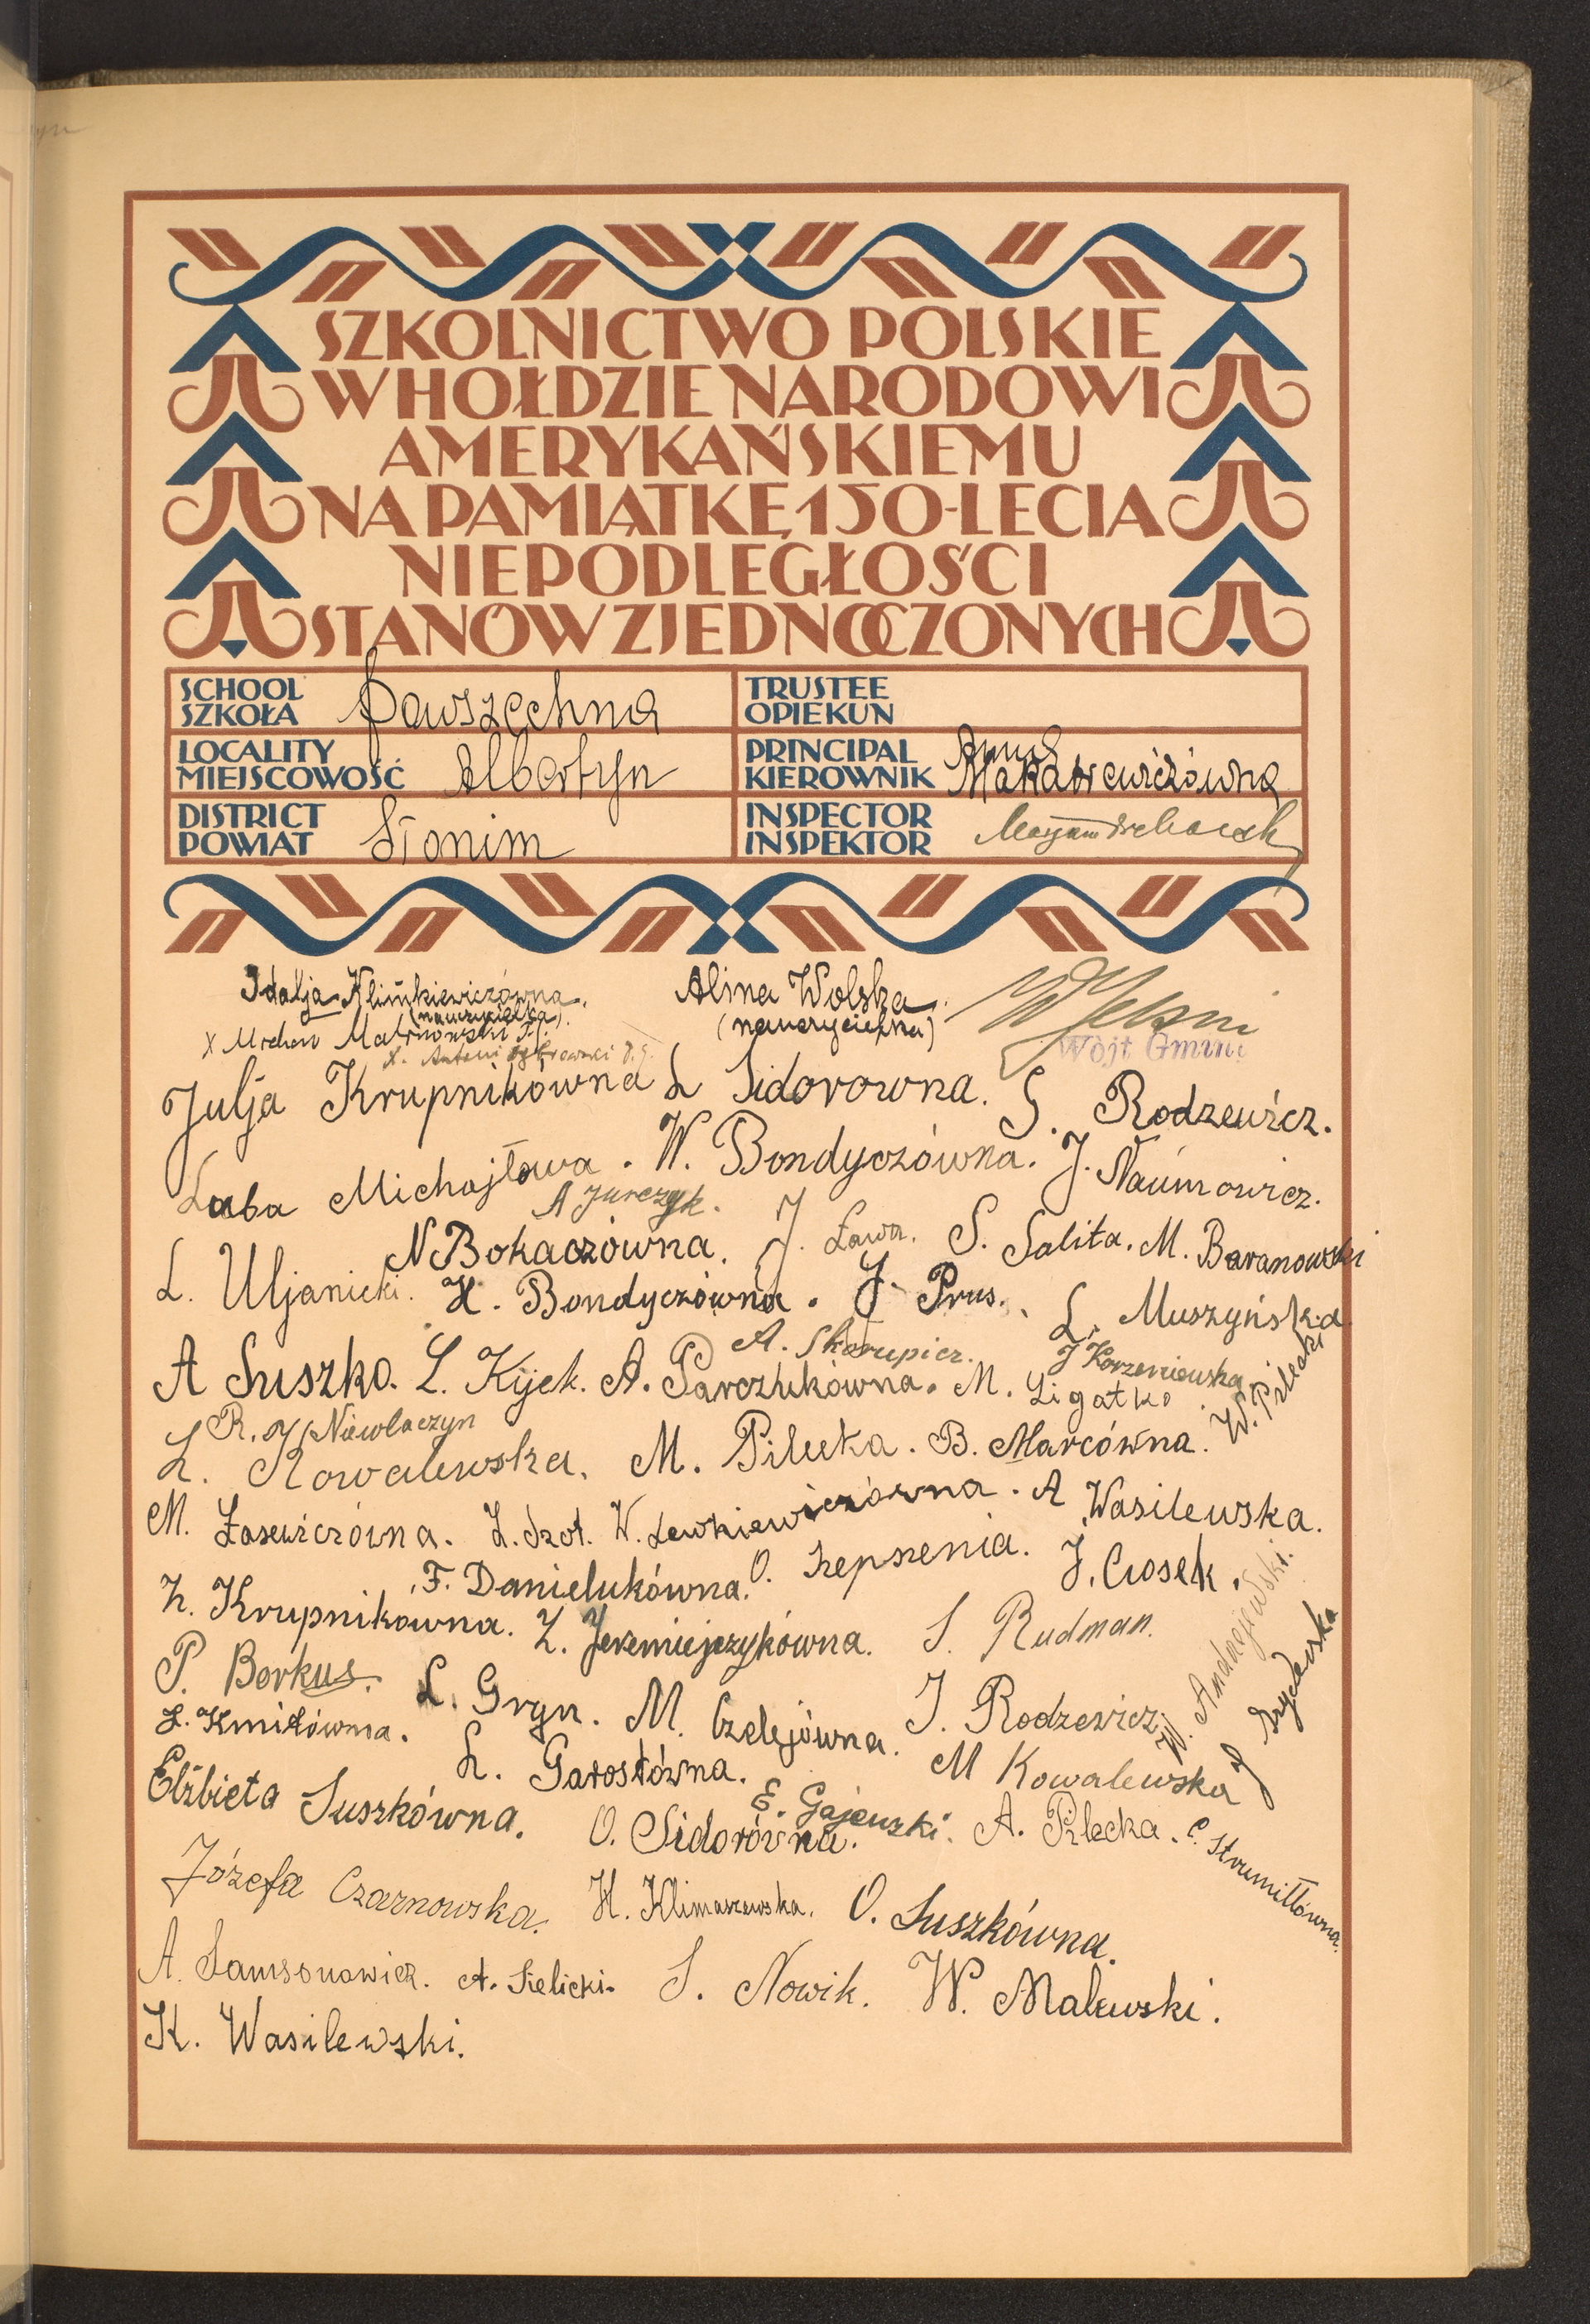 SZKOLNICTWO POLSKIE
W HOŁDZIE NARODOWI
AMERYKAŃSKIEMU
NA PAMIĄTKĘ 150-LECIA
NIEPODLEGŁOŚCI
STANÓW ZJEDNOCZONYCH
SCHOOL SZKOŁA Powszechna
TRUSTEE OPIEKUN
LOCALITY MIEJSCOWOŚĆ Albertyn
PRINCIPAL KIEROWNIK Anna Makarewiczówna
DISTRICT POWIAT Słonim
INSPECTOR INSPEKTOR
Idalja Klimkiewiczówna. (nauczycielka).
Alina Wolska. (nauczycielka)
Wójt Gminy
X Antoni Dąbrowski
Julja Krupnikówna L Sidorowna. S. Rodzewicz.
Luba Michajłowa. W. Bondyczówna. J. Naumowicz.
A Jurczyk.
N Bokaczówna. J. Ława. S. Salita. M. Baranowski
L. Uljanicki. H. Bondyczówna. J. Prus. L. Muszyńska
A. Skorupicz. J Korzeniewska
A Suszko. L. Kijek. A. Parczukówna. M. Ligatko. W. Pilecki
R. Niewłaczyn
L. Kowalewska. M. Pilecka. B. Marcówna.
M. Łasewiczówna. L. Szot. W. Lewkiewiczówna. A Wasilewska.
F. Danielukówna. O. Szepszenia. J. Ciosek.
Z. Krupnikowna. Z. Jeremiejczykówna. S. Rudman.
P. Borkus. L. Gryn. M. Czelejówna. J. Rodzewicz W. Andrzejewski.
L. Kmitówna. L. Garostówna. M Kowalewska J Szydłowska
Elżbieta Suszkówna. O. Sidorówna. E. Gajewski. A. Pilecka. C. Strumiłłówna.
Józefa Czarnowska. H. Klimaszewska. O. Suszkówna.
A. Samsonowicz. A. Sielicki. S. Nowik. W. Malewski.
K. Wasilewski.